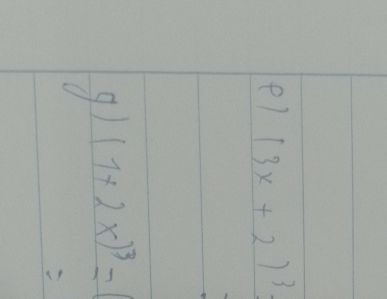 e) (3x + 2)³ =
g) (1 + 2x)³ = (
=